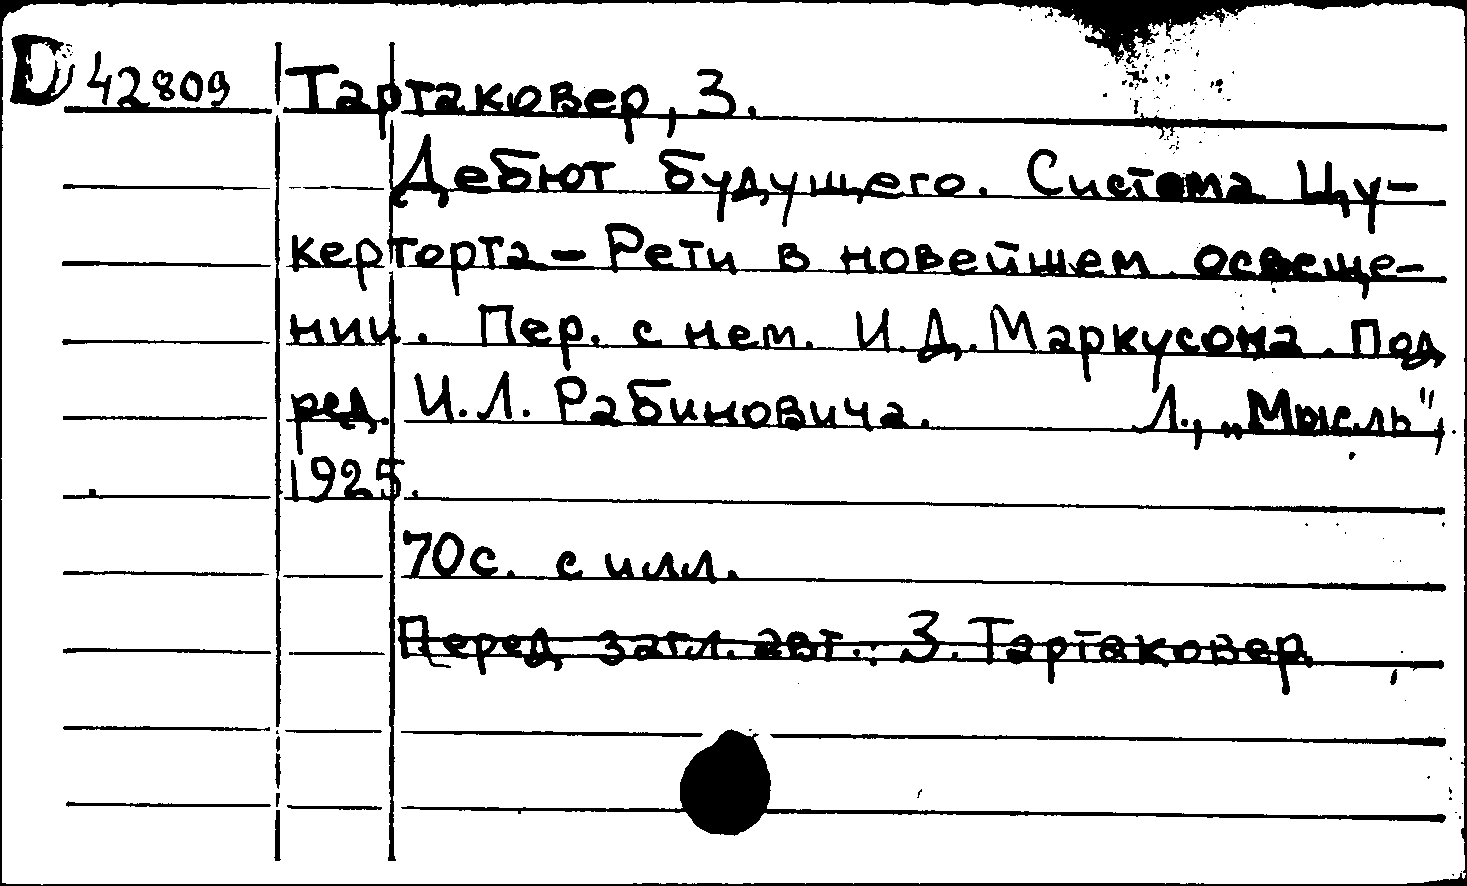 D 42809 Тартаковер, З.
Дебют будущего. Система Цу-
керторта - Рети в новейшем освеще-
нии. Пер. с нем. И.Д. Маркусона. Под
ред. И.Л. Рабиновича. Л., „Мысль",
1925.
70с. с илл.
Перед загл. авт.: З. Тартаковер